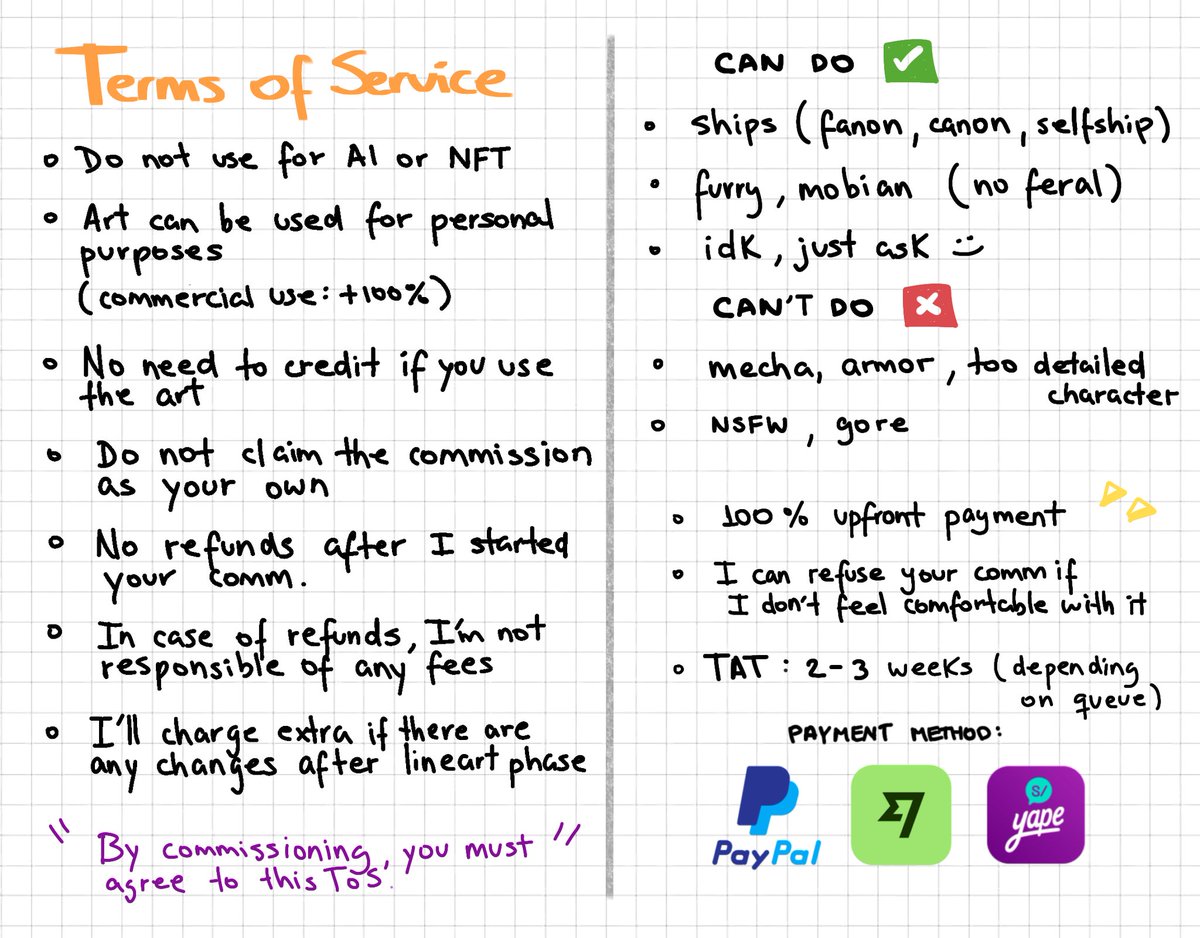 Terms of Service
Do not use for AI or NFT
Art can be used for personal
purposes
(commercial use: +100%)
No need to credit if you use
the art
Do not claim the commission
as your own
No refunds after I started
your comm.
In case of refunds, I'm not
responsible of any fees
I'll charge extra if there are
any changes after lineart phase
"By commissioning, you must"
agree to this ToS.
CAN DO
ships (fanon, canon, selfship)
furry, mobian (no feral)
idk, just ask :)
CAN'T DO
mecha, armor, too detailed
character
NSFW, gore
100% upfront payment
I can refuse your comm if
I don't feel comfortable with it
TAT: 2-3 weeks (depending
on queue)
PAYMENT METHOD:
PayPal
S/
yape